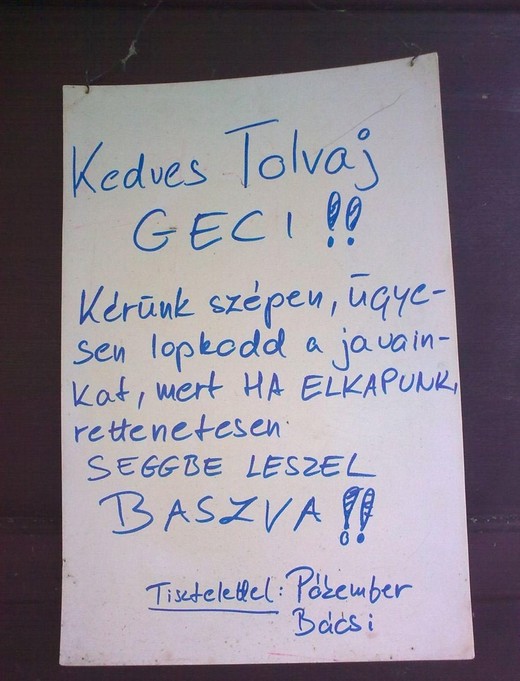 Kedves Tolvaj
GECI !!
Kérünk szépen, ügye-
sen lopkodd a javain-
kat, mert HA ELKAPUNK,
rettenetesen
SEGGBE LESZEL
BASZVA !!
Tisztelettel: Pókember
Bácsi